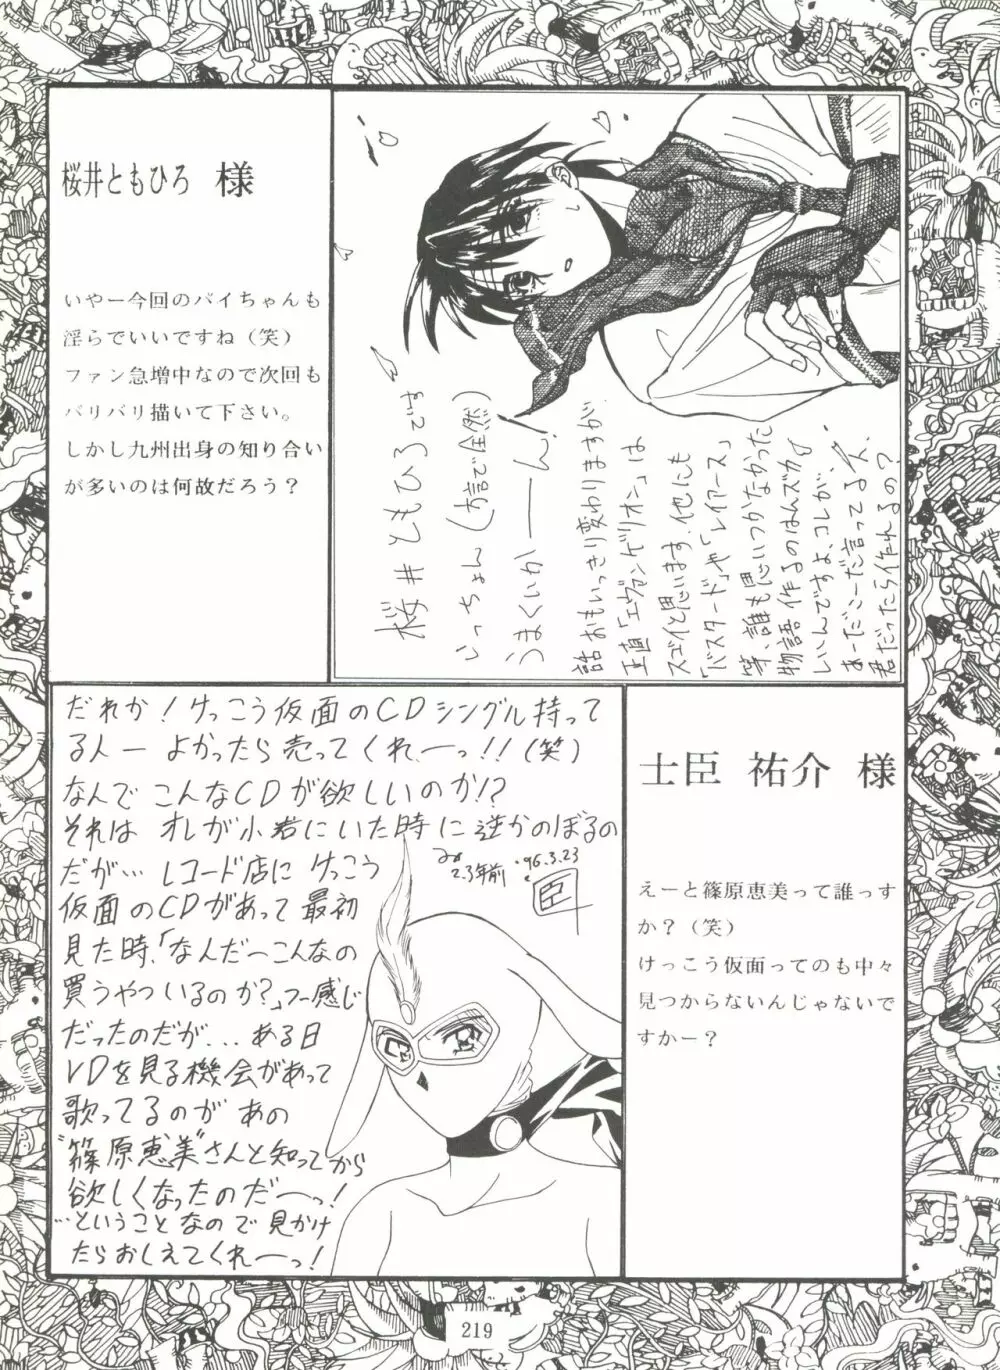 桜井ともひろ 様
いやー今回のバイちゃんも
淫らでいいですね（笑）
ファン急増中なので次回も
バリバリ描いて下さい。
しかし九州出身の知り合い
が多いのは何故だろう？
桜井ともひろです
いっちょん（方言で全然）
うまくいかーーん。
話おもいっきり変わりますが
正直「エヴァンゲリオン」は
スゴイと思います。他にも
「バスタード」や「レイアース」
等、誰も思いつかなかった
物語作るのはムズカイ
いいんですよ、コレが、
あーだこーだ言ってる人、
君だったら作れるの？
だれか！けっこう仮面のCDシングル持って
る人ー よかったら売ってくれーっ！！（笑）
なんでこんなCDが欲しいのか！？
それは オレが小若にいた時に逆かのぼるの
だが… レコード店に けっこう
2.3年前
'96.3.23
臣
仮面のCDがあって 最初
見た時、「なんだーこんなの
買うやついるのか？」フー感じ
だったのだが... ある日
VDを見る機会があって
歌ってるのが あの
"篠原恵美"さんと知ってから
欲しくなったのだーっ！
…ということなので 見かけ
たらおしえてくれーっ！
士臣 祐介 様
えーと篠原恵美って誰っす
か？（笑）
けっこう仮面ってのも中々
見つからないんじゃないで
すかー？
219